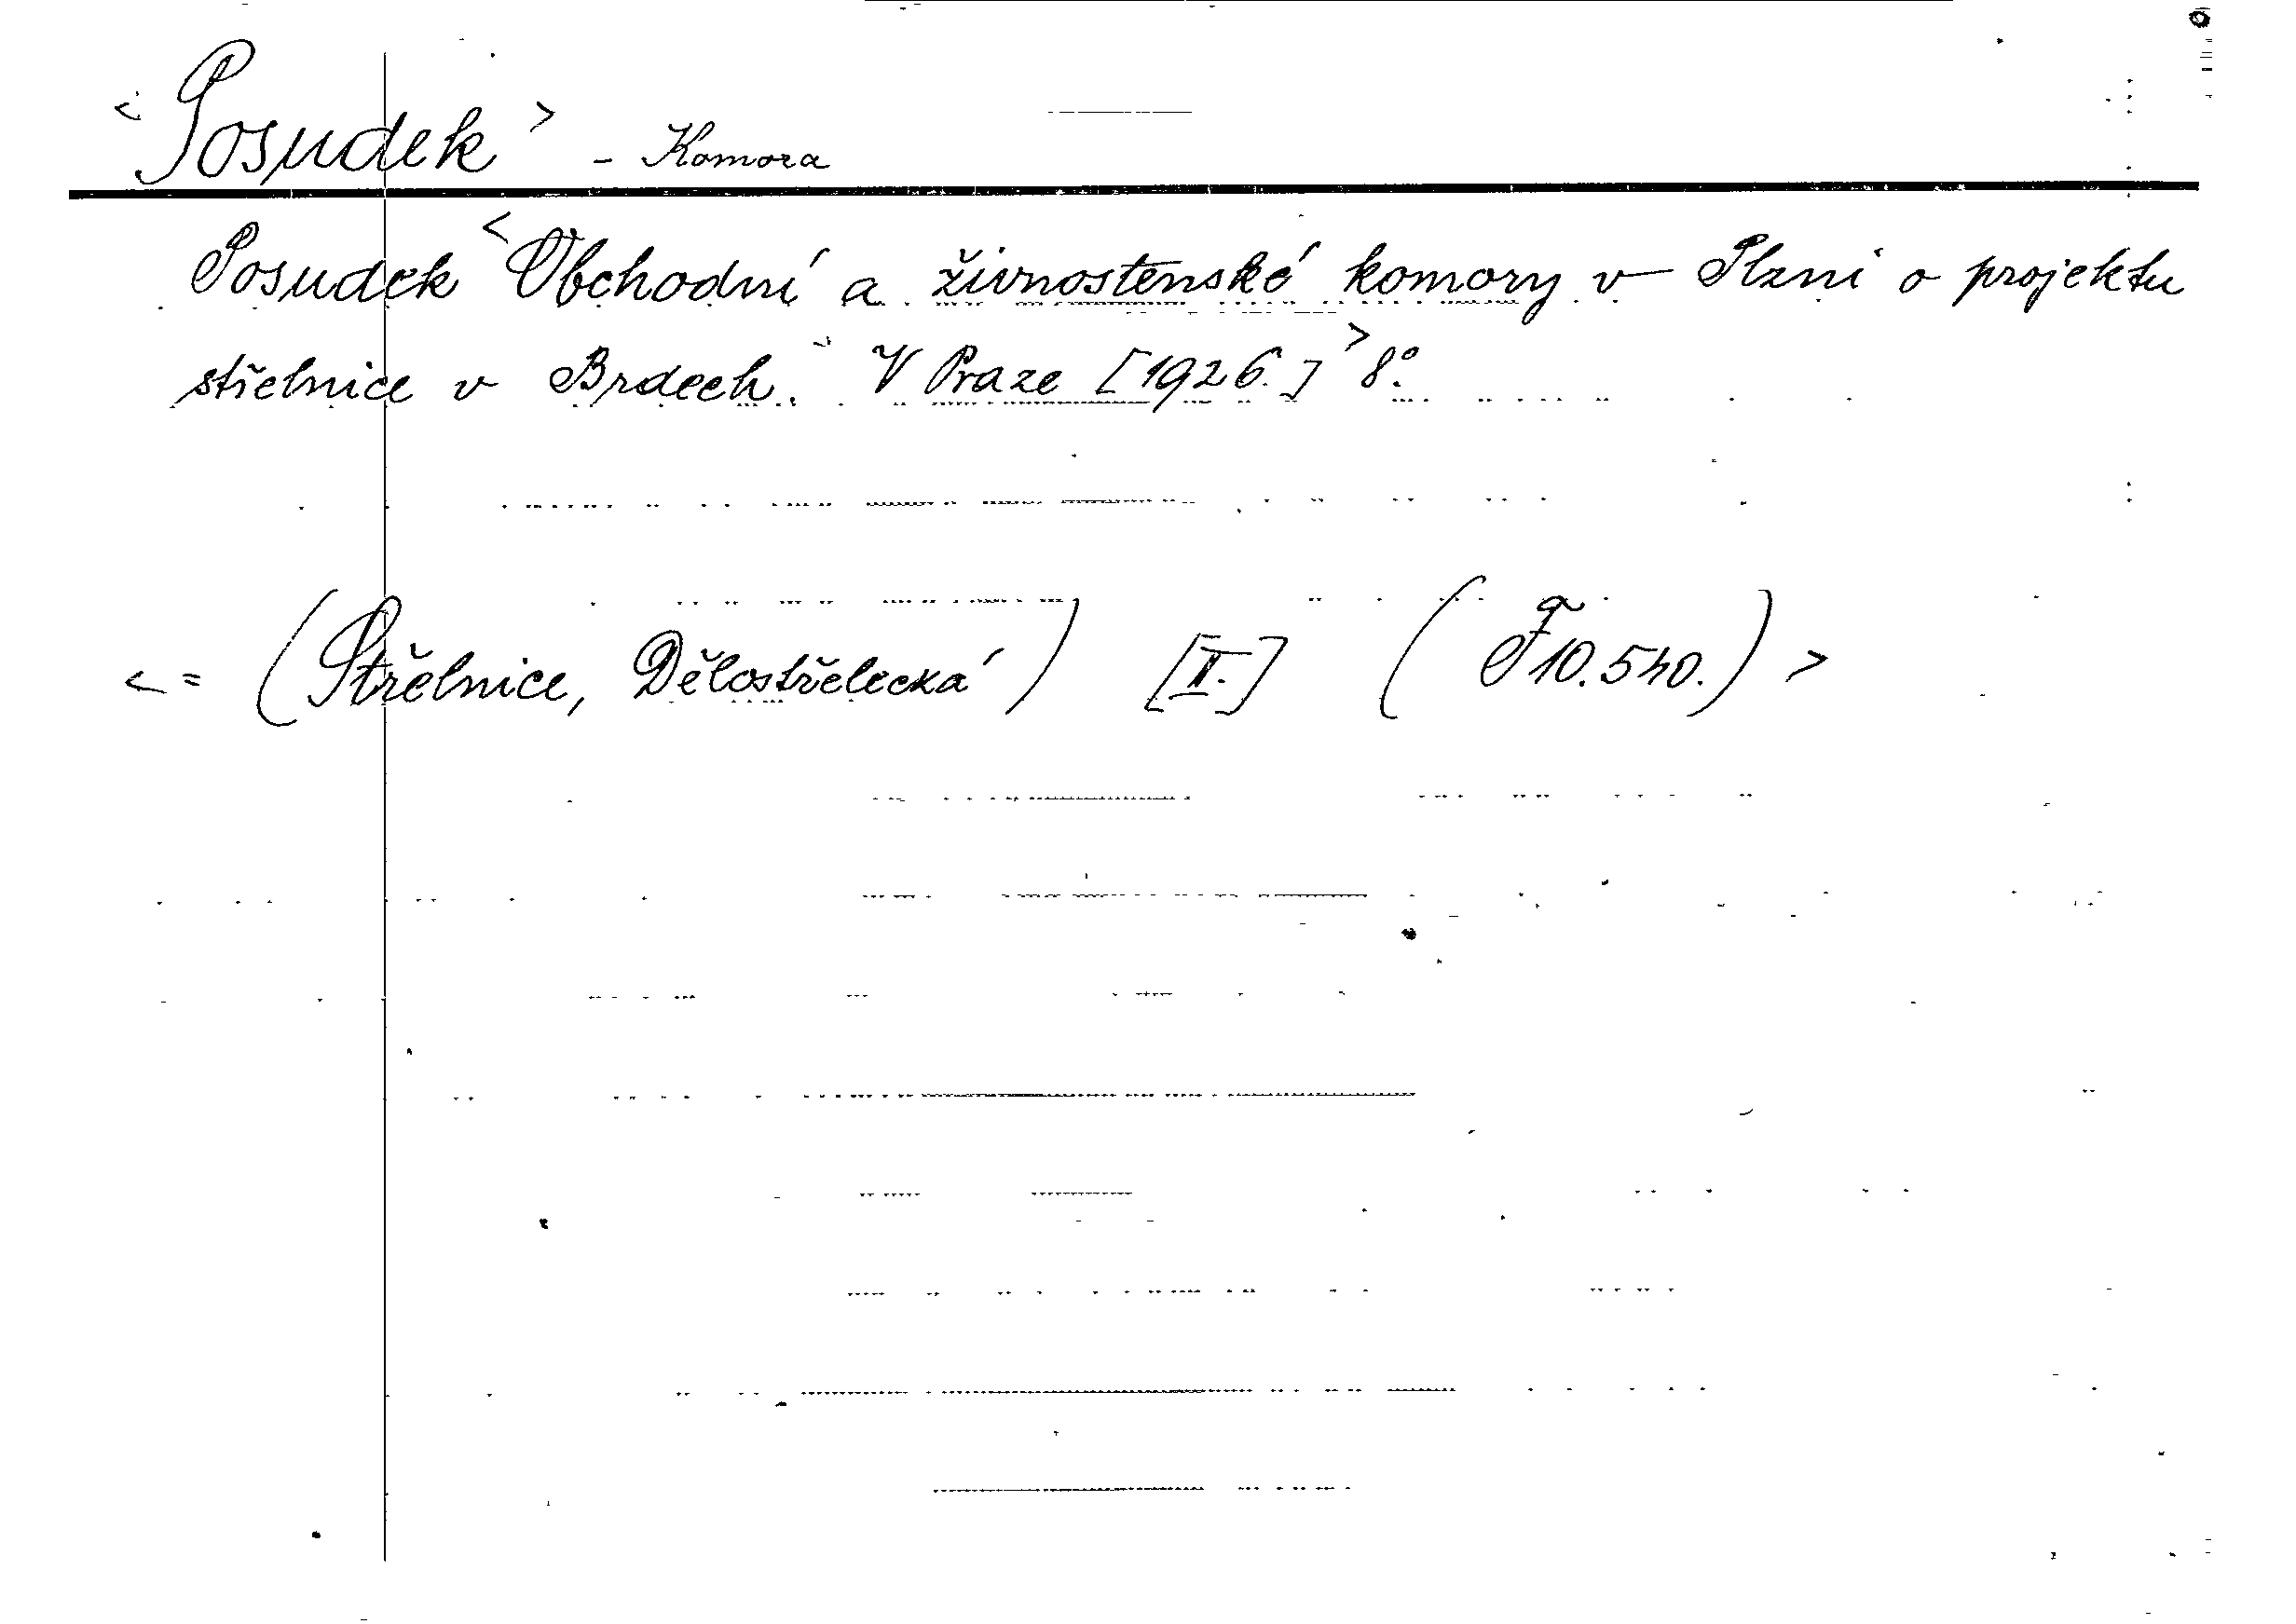 < Posudek > - Komora
Posudek < Obchodní a živnostenské komory v Plzni o projektu
střelnice v Brdech. V Praze [1926.] > 8°.
< = (Střelnice, Dělostřelecká) [II.] (F 10.540.) >